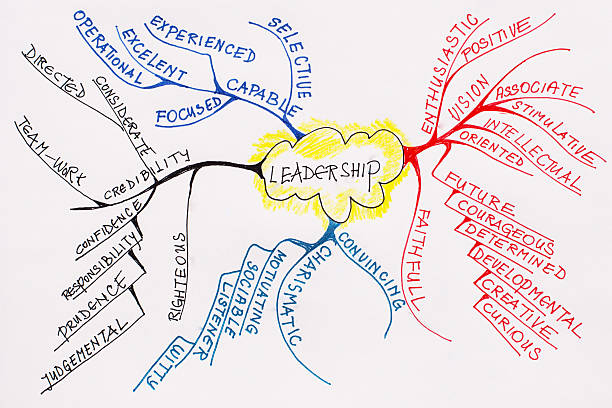 LEADERSHIP
SELECTIVE
CAPABLE
EXPERIENCED
EXCELENT
OPERATIONAL
FOCUSED
ENTHUSIASTIC
POSITIVE
VISION
ASSOCIATE
STIMULATIVE
INTELLECTUAL
ORIENTED
FUTURE
COURAGEOUS
DETERMINED
DEVELOPMENTAL
CREATIVE
CURIOUS
FAITHFULL
CONVINCING
CHARISMATIC
MOTIVATING
SOCIABLE
LISTENER
WITTY
CREDIBILITY
CONSIDERATE
DIRECTED
TEAM-WORK
CONFIDENCE
RESPONSIBILITY
PRUDENCE
JUDGEMENTAL
RIGHTEOUS